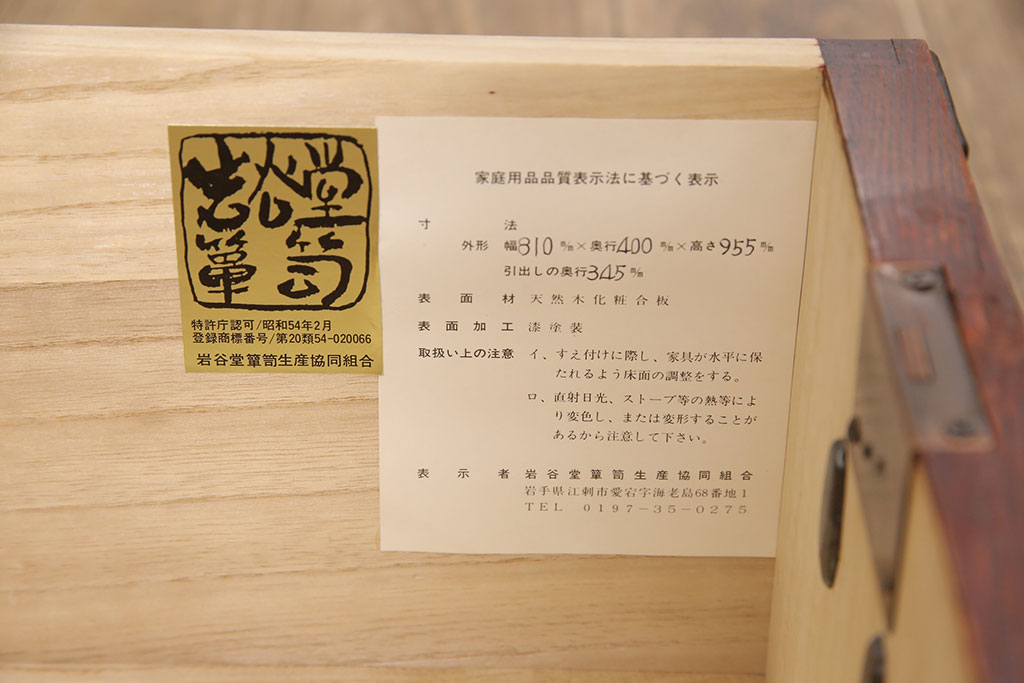 岩谷堂箪笥
特許庁認可/昭和54年2月
登録商標番号/第20類54-020066
岩谷堂簞笥生産協同組合
家庭用品品質表示法に基づく表示
寸法
外形 幅810㎜×奥行400㎜×高さ955㎜
引出しの奥行345㎜
表面材 天然木化粧合板
表面加工 漆塗装
取扱い上の注意 イ、すえ付けに際し、家具が水平に保
たれるよう床面の調整をする。
ロ、直射日光、ストーブ等の熱等によ
り変色し、または変形することが
あるから注意して下さい。
表示者 岩谷堂簞笥生産協同組合
岩手県江刺市愛宕字海老島68番地1
TEL 0197-35-0275